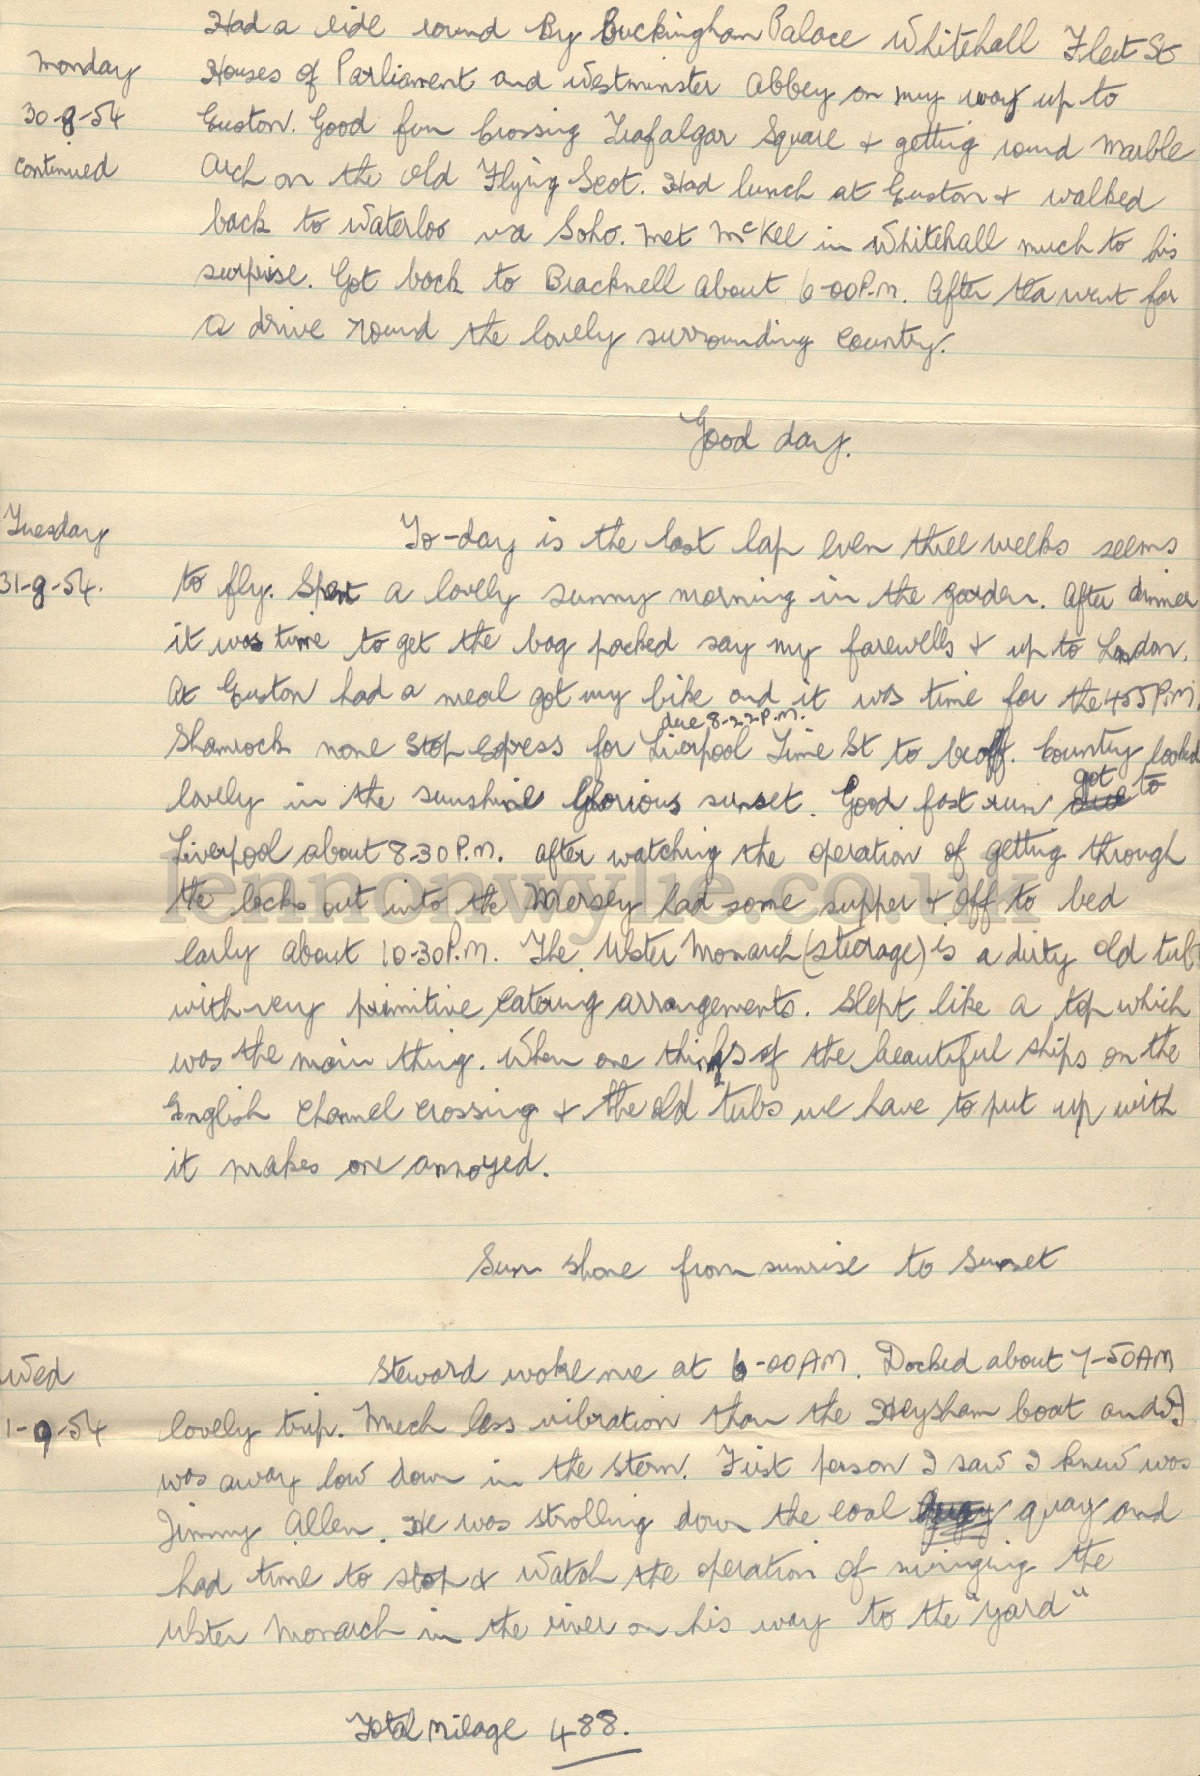 Had a ride round By Buckingham Palace Whitehall Fleet St
Monday
Houses of Parliament and Westminster Abbey on my way up to
30-8-54
Euston. Good fun crossing Trafalgar Square & getting round Marble
continued
Arch on the old Flying Scot. Had lunch at Euston & walked
back to Waterloo via Soho. Met McKee in Whitehall much to his
surprise. Got back to Bracknell about 6-00P.M. After tea went for
a drive round the lovely surrounding country.
Good day.
Tuesday
To-day is the last lap even three weeks seems
31-8-54.
to fly. Spent a lovely sunny morning in the garden. After dinner
it was time to get the bag packed say my farewells & up to London.
At Euston had a meal got my bike and it was time for the 455P.M.
due 8-22P.M.
Shamrock none stop express for Liverpool Lime St to be off. Country looked
got
lovely in the sunshine Glorious sunset. Good fast run due to
Liverpool about 8-30P.M. After watching the operation of getting through
lennonwylie.co.uk
the locks out into the Mersey had some supper & off to bed
early about 10-30P.M. The Ulster Monarch (steerage) is a dirty old tub
with very primitive catering arrangements. Slept like a top which
was the main thing. When one thinks of the beautiful ships on the
English Channel crossing & the old tubs we have to put up with
it makes one annoyed.
Sun shone from sunrise to sunset
Wed
Steward woke me at 6-00AM. Docked about 7-50AM
1-9-54
lovely trip. Much less vibration than the Heysham boat and I
was away low down in the stern. First person I saw I knew was
Jimmy Allen. He was strolling down the coal quay and
had time to stop & watch the operation of swinging the
Ulster Monarch in the river on his way to the "yard"
Total Milage 488.